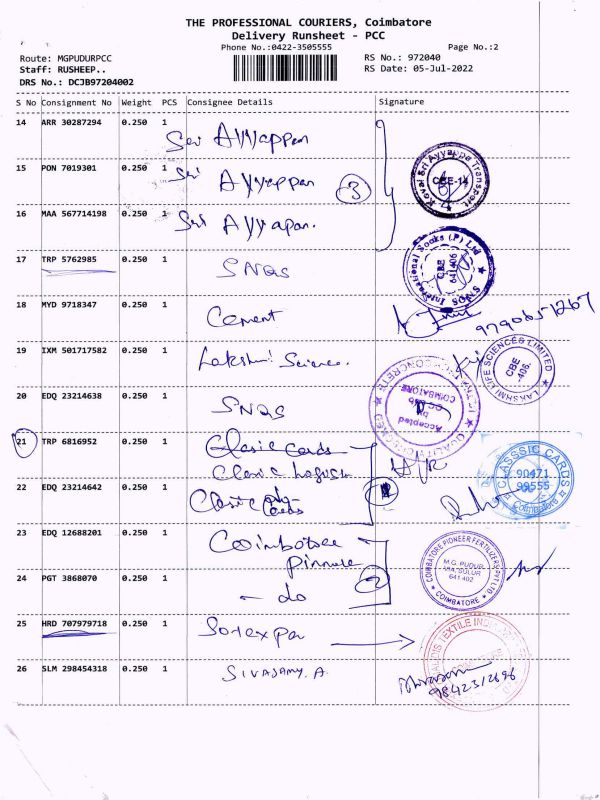 THE PROFESSIONAL COURIERS, Coimbatore
Delivery Runsheet - PCC
Phone No.:0422-3505555
Page No.:2
Route: MGPUDURPCC
RS No.: 972040
Staff: RUSHEEP..
RS Date: 05-Jul-2022
DRS No.: DCJB97204002
S No Consignment No Weight PCS Consignee Details Signature
14 ARR 30287294 0.250 1 Sri Ayyappan
15 PON 7019301 0.250 1 Sri Ayyappan 3
Kovai Sri Ayyappa Transport
CBE-14
16 MAA 567714198 0.250 1 Sri Ayyapan.
17 TRP 5762985 0.250 1 SNQS
SNQS International Socks (P) Ltd
CBE
641406
18 MYD 9718347 0.250 1 Cement
9790651267
19 IXM 501717582 0.250 1 Lakshmi Science.
LAKSHMI LIFE SCIENCES LIMITED
CBE
-406.
20 EDQ 23214638 0.250 1 SNQS
Accepted
by
COIMBATORE
21 TRP 6816952 0.250 1 Clasic Cards
22 EDQ 23214642 0.250 1
CLASSSIC CARDS
90471
99555
Coimbatore
23 EDQ 12688201 0.250 1 Coimbatore
24 PGT 3868070 0.250 1 - do 2
COIMBATORE PIONEER FERTILIZERS PVT LTD
M.G. PUDUR,
VIA, SULUR
641 402
COIMBATORE
25 HRD 707979718 0.250 1
26 SLM 298454318 0.250 1 SIVASAMY. A.
9842312696